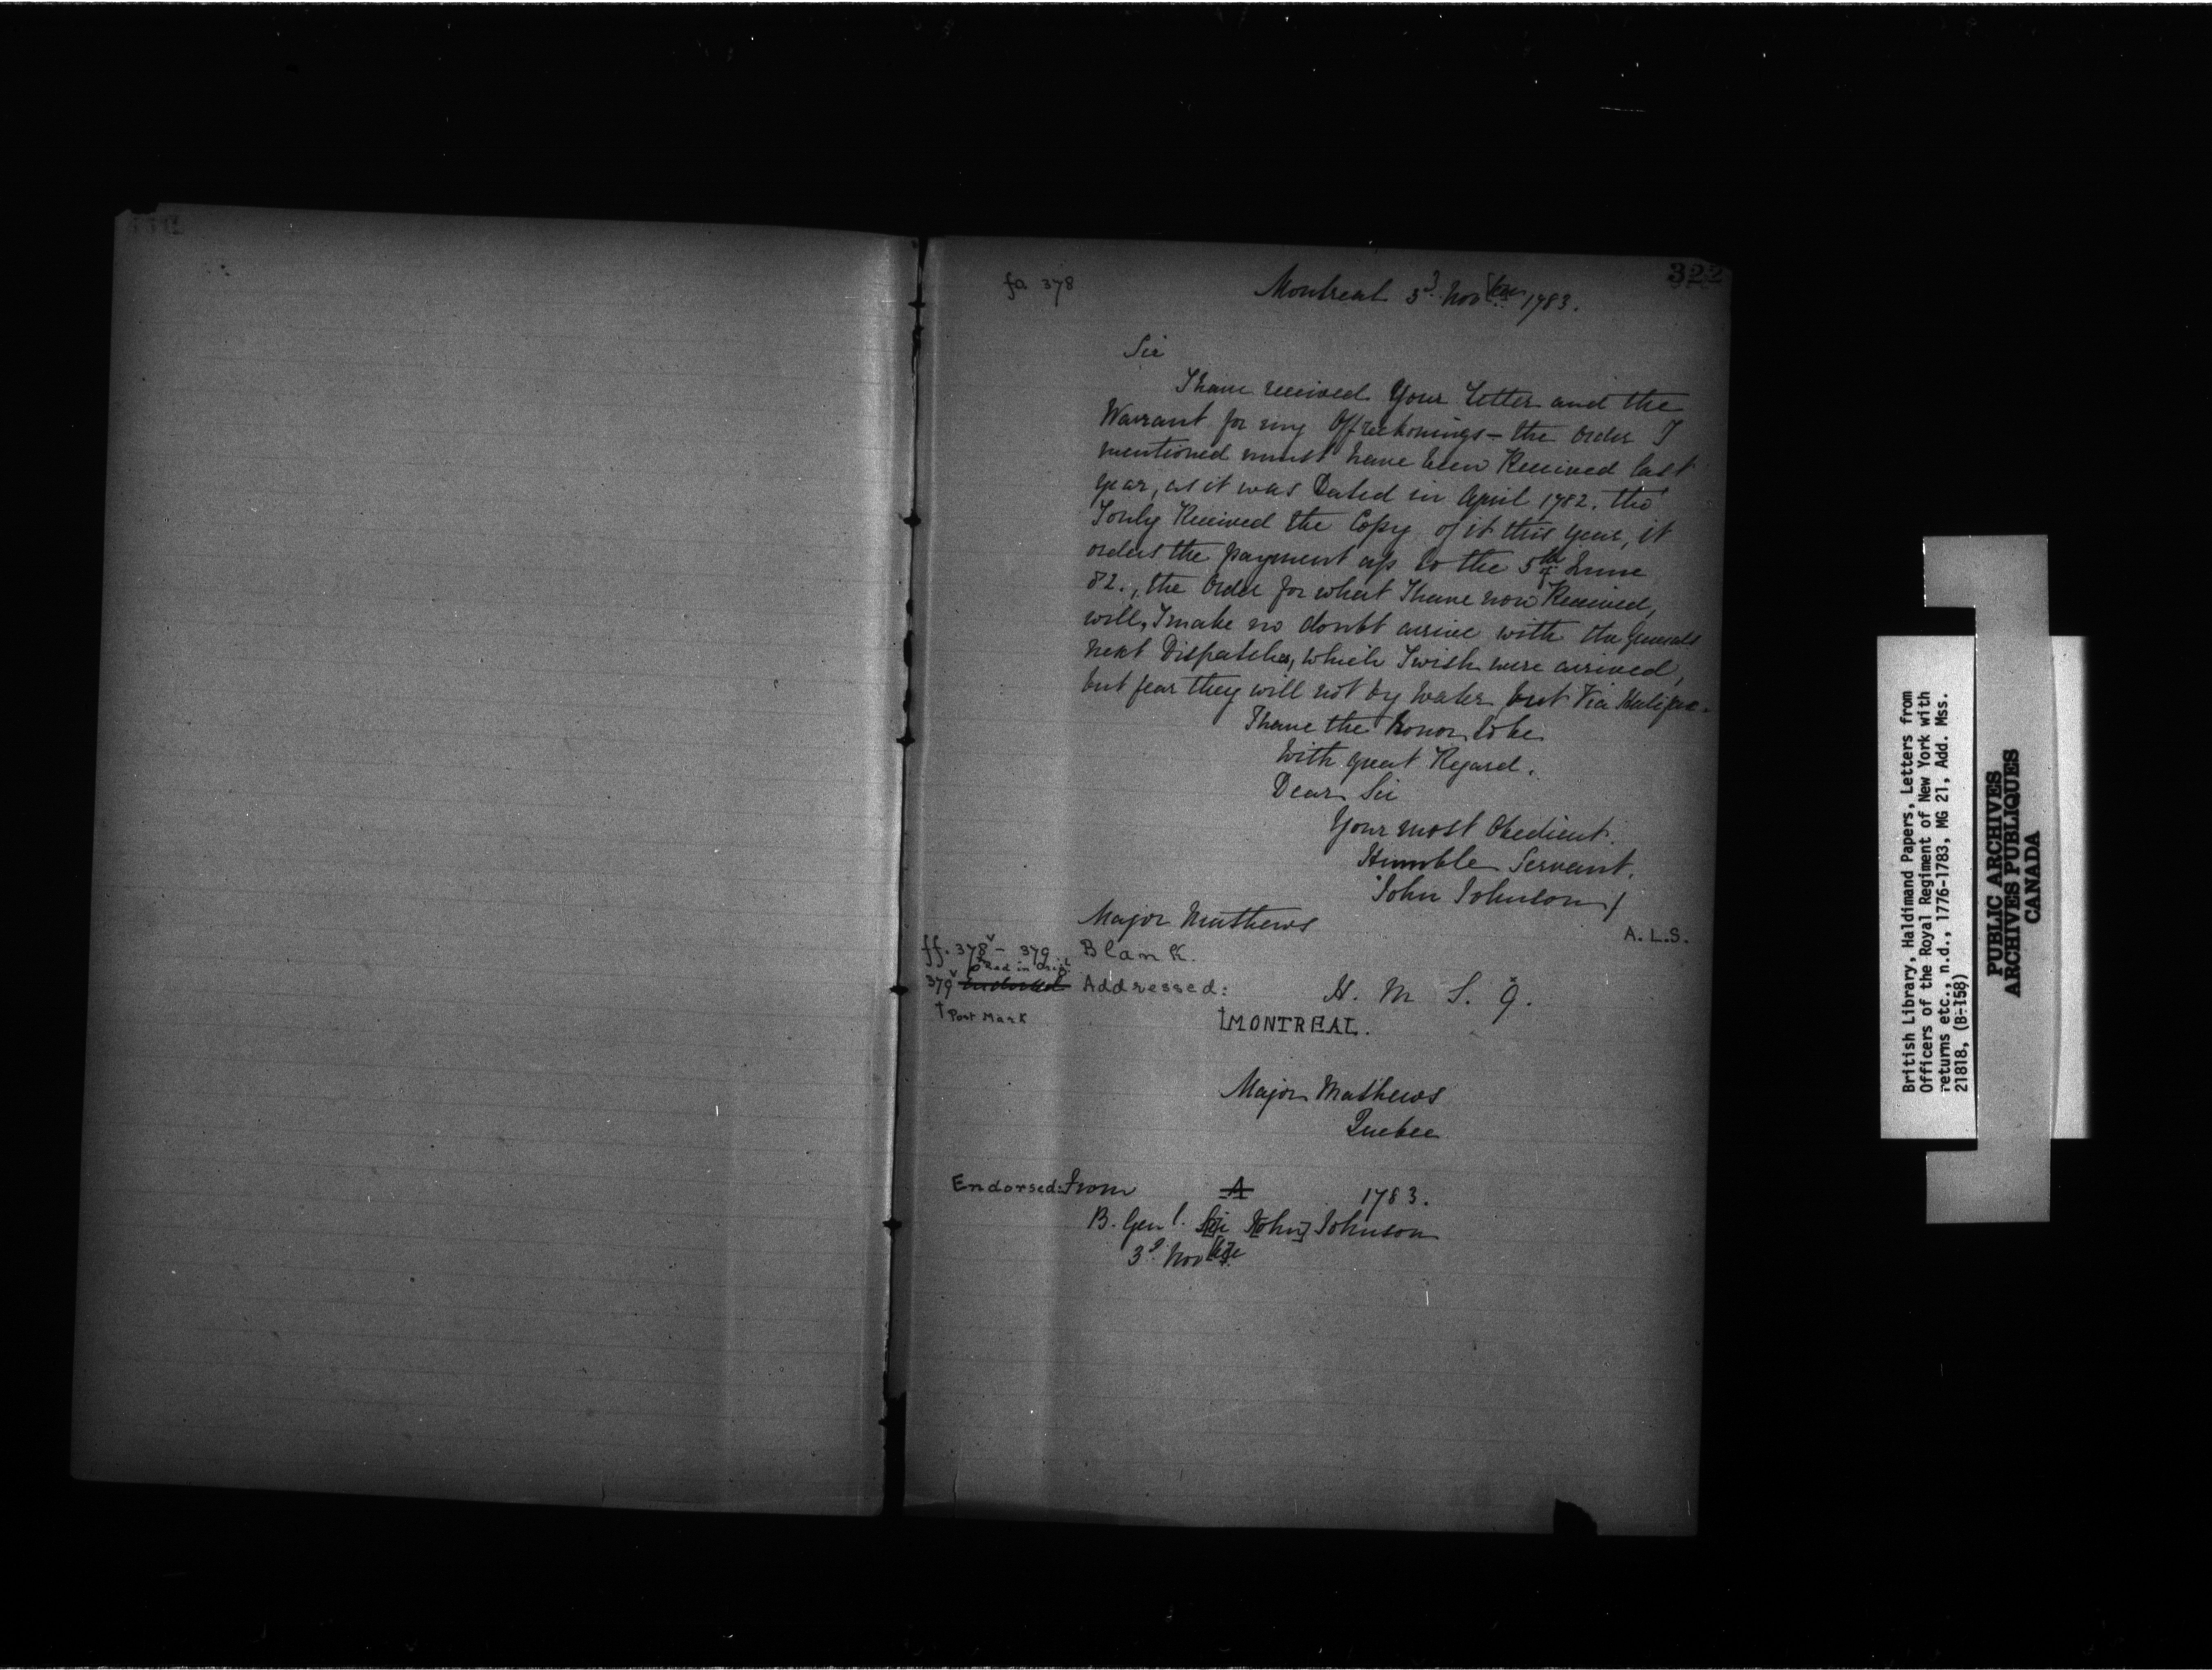 322
fo. 378
Montreal 3d Novber 1783.
Sir
I have received Your Letter and the
Warrant for my Offreckonings — the Order I
mentioned must have been Received last
year, as it was Dated in April 1782. tho'
I only Received the Copy of it this year, it
orders the payment up to the 5th June
82., the Order for what I have now Received,
will, I make no doubt arrive with the Generals
next Dispatches, which I wish were arrived,
but fear they will not by Water but Via Halifax.
I have the honor to be
With great Regard.
Dear Sir
Your most Obedient.
Humble Servant.
John Johnson
Major Mathews
A.L.S.
ff. 378v - 379 Blank.
Red in Orig.l
379v Endorsed Addressed: H. M S. 9.
† Post Mark
†MONTREAL.
Major Mathews
Quebec
Endorsed: From A 1783.
B. Genl. Sir John] Johnson
3d. Novbre
British Library, Haldimand Papers, Letters from
Officers of the Royal Regiment of New York with
returns etc., n.d., 1776-1783, MG 21, Add. Mss.
21818, (B-158)
PUBLIC ARCHIVES
ARCHIVES PUBLIQUES
CANADA